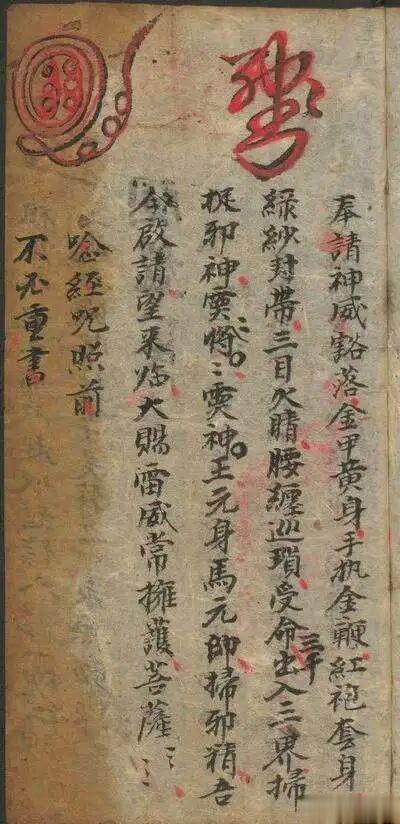 奉請神威豁落金甲黃身手执金鞭紅袍套身
綠紗封帶三目火睛腰纏巡瑣受命出入三千三界掃
捉邪神灵將灵神王元身馬元帥掃邪精吾
今啟請望來临大賜雷威常擁護菩薩〻〻
唸經咒照前
不必重書